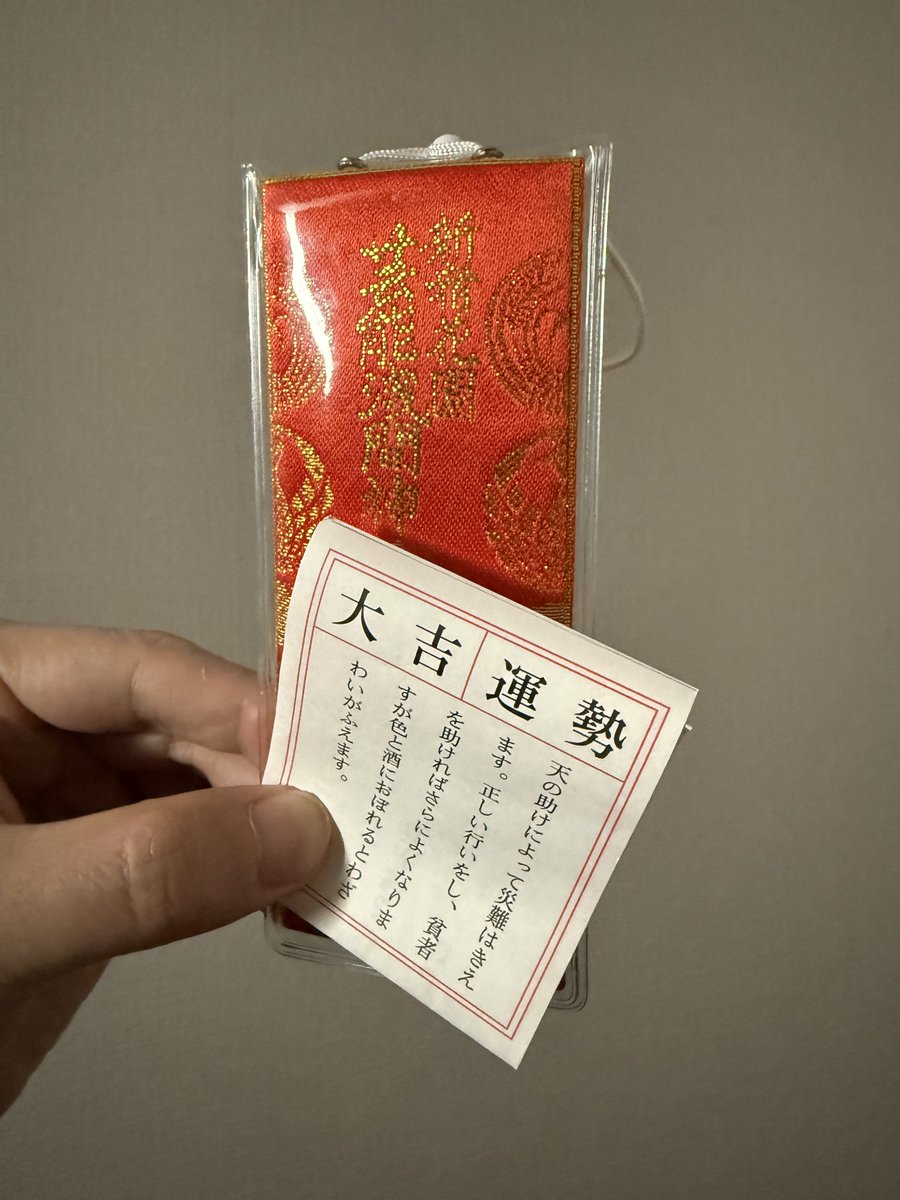 新宿花園
芸能浅間神
大吉 運勢
天の助けによって災難はきえ
ます。正しい行いをし、貧者
を助ければさらによくなりま
すが色と酒におぼれるとわざ
わいがふえます。